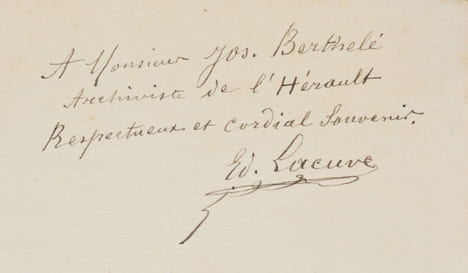 A Monsieur Jos. Berthelé
Archiviste de l'Hérault
Respectueux et cordial souvenir.
Ed. Lacuve